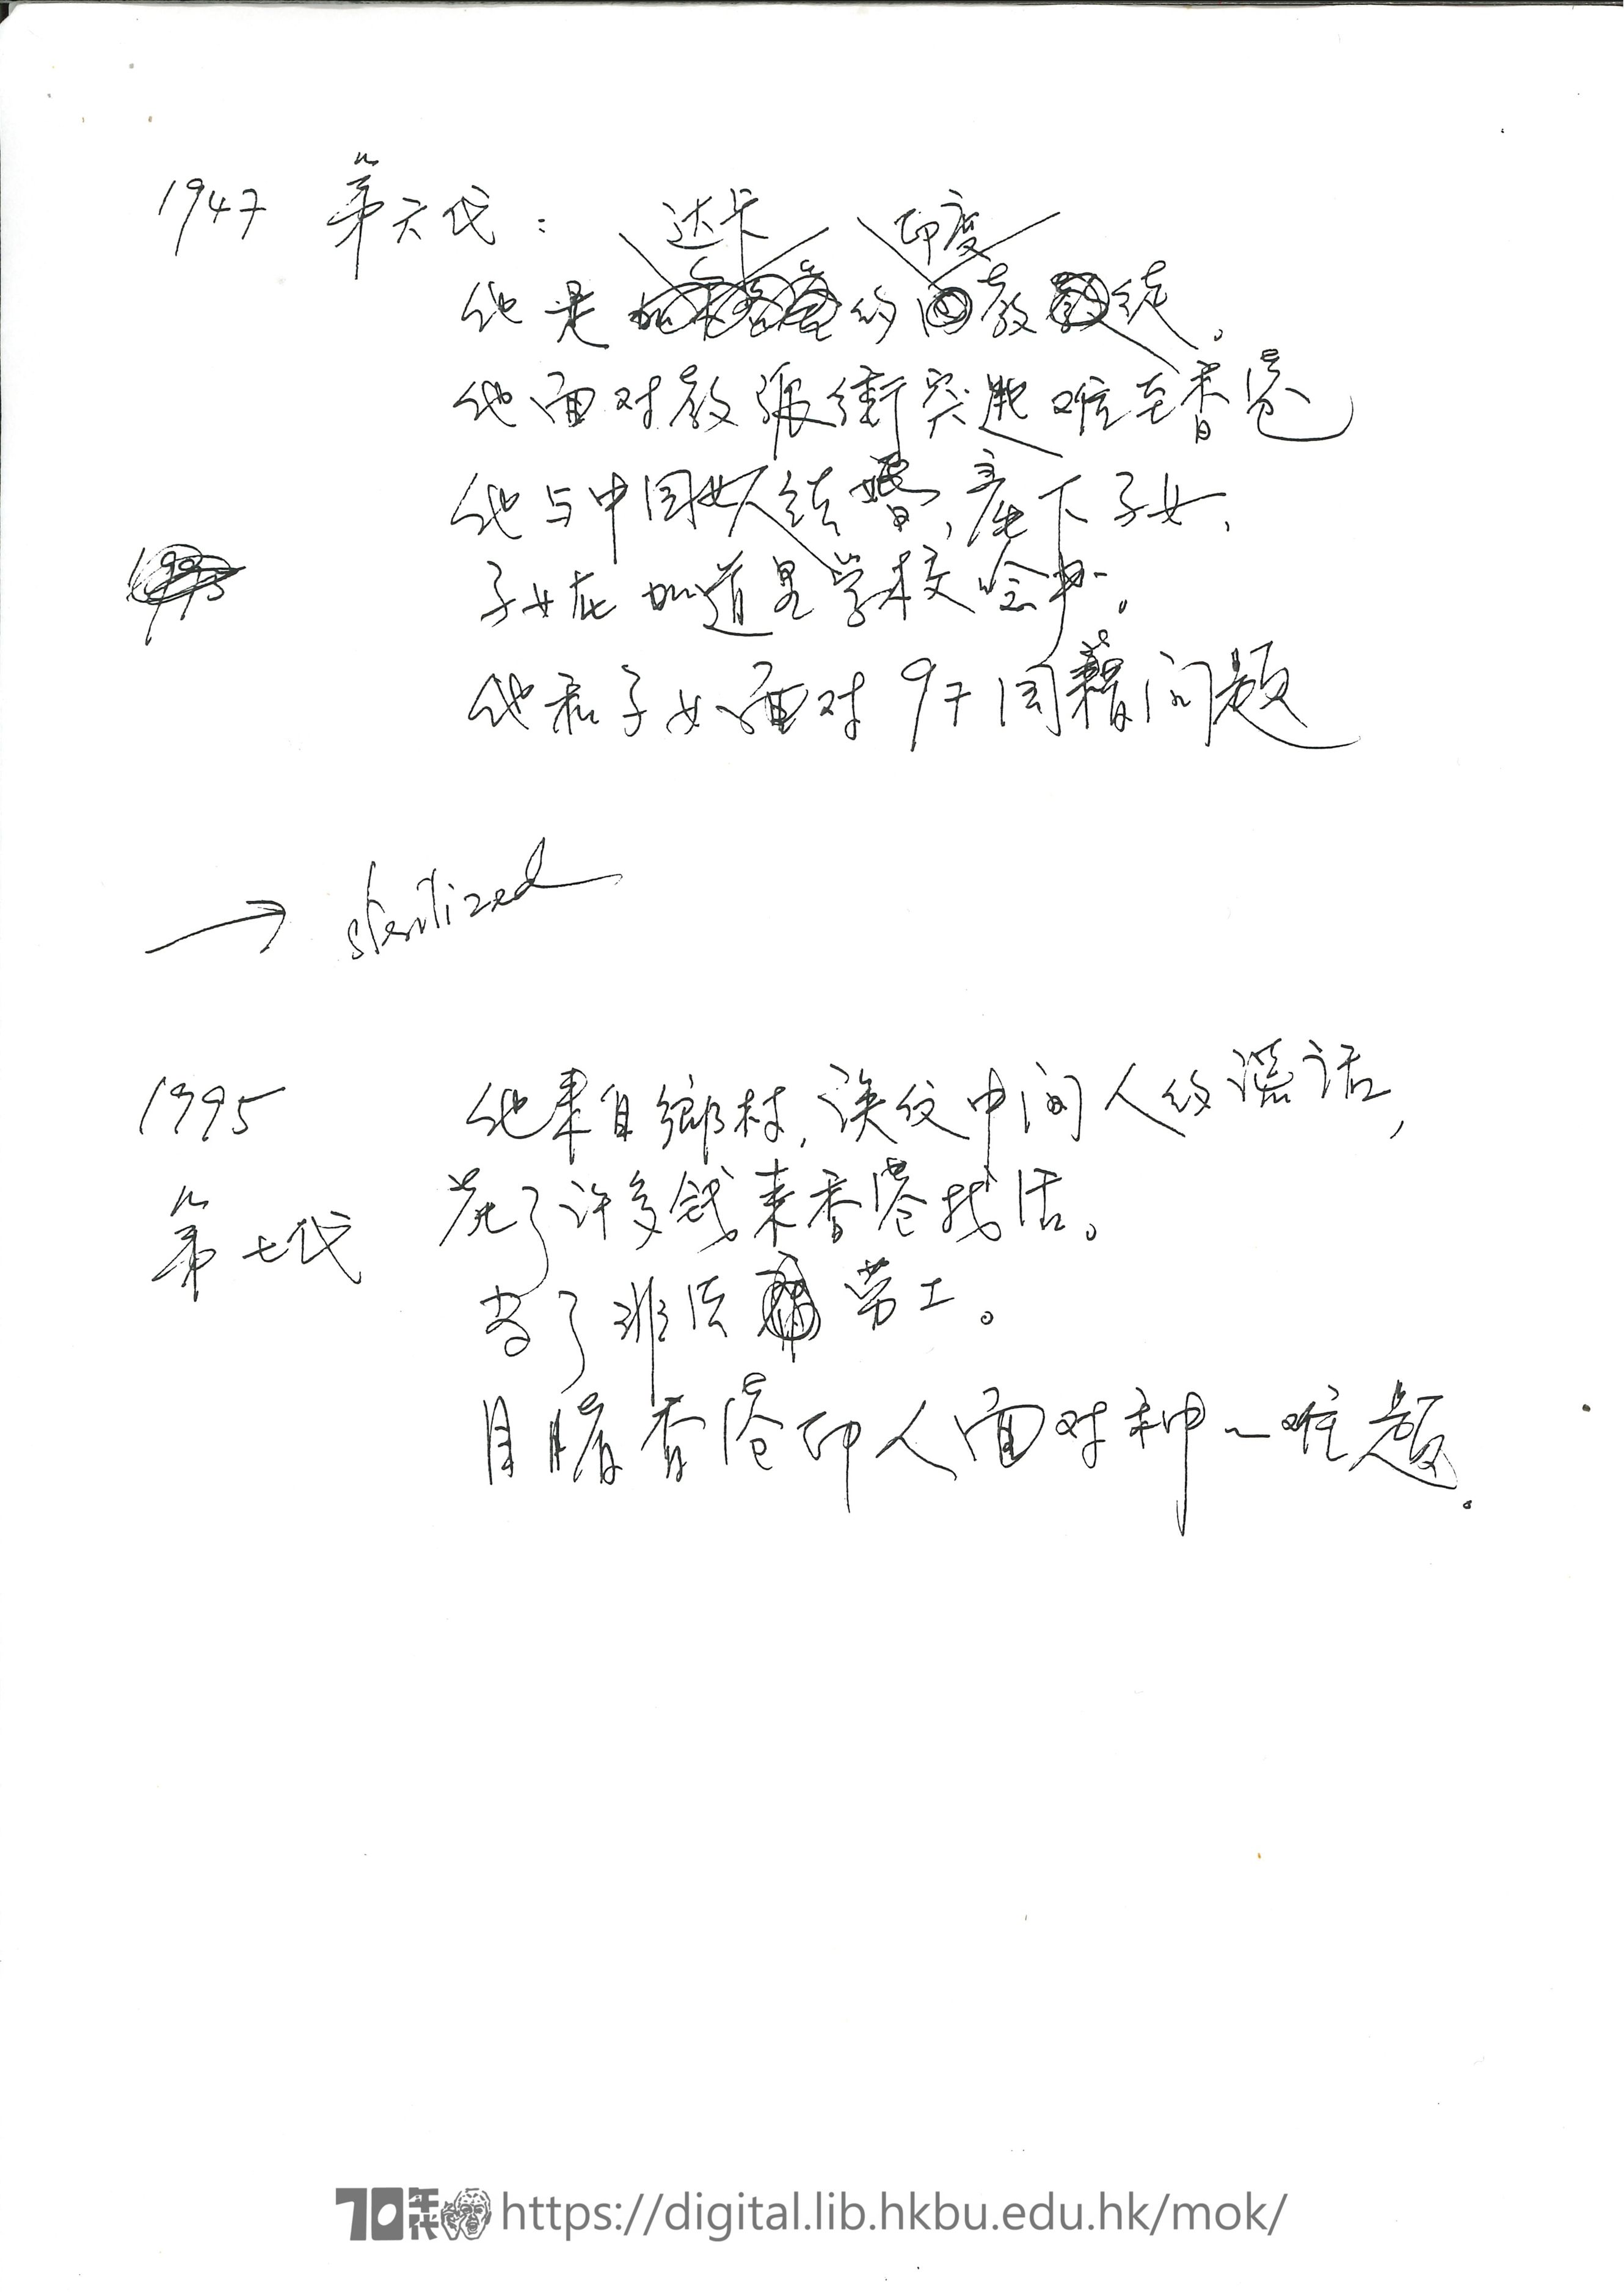 1947 第六代：
达卡 印度
他是的教徒。
他面对教派衝突逃难至香港
他与中国女人结婚，产下子女，
子女在加道里学校念书。
他和子女面对97国籍问题
→ sterilized
1995 他来自鄉村，误饮中间人的谎话，
第七代 花了许多钱来香港找活。
当了非法劳工。
目睹香港印人面对种~难题。
70年代 https://digital.lib.hkbu.edu.hk/mok/